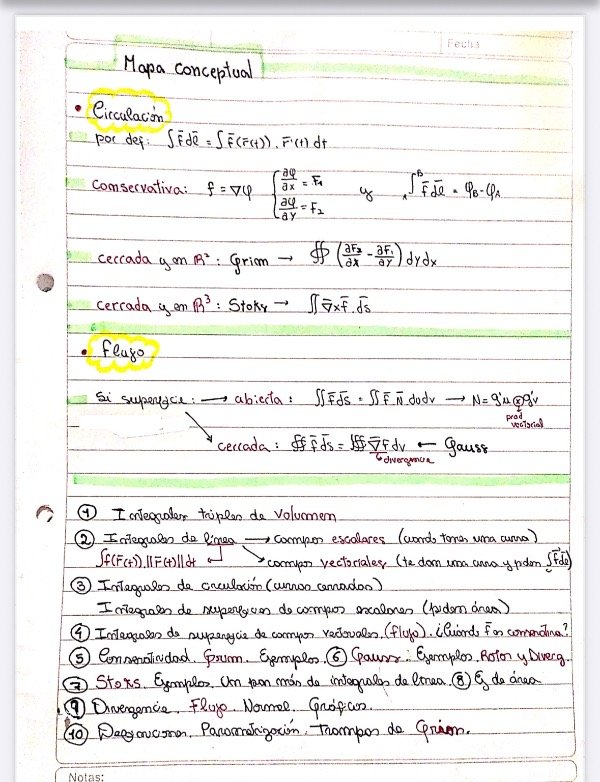 Fecha
Mapa conceptual
• Circulación
por def: ∫F̄dℓ̄ = ∫F̄(r̄(t)) . r̄'(t) dt
conservativa: f = ∇φ { ∂φ/∂x = F₁ ∂φ/∂y = F₂ y A∫B F̄dℓ̄ = φB - φA
cerrada y en R² : Grim → ∯ (∂F₂/∂x - ∂F₁/∂y) dydx
cerrada y en R³ : Stoks → ∬ ∇̄xf̄ . ds̄
• Flujo
Si superficie : → abierta : ∬F̄ds̄ = ∬F̄ . N̄ . dudv → N = g'u ⊗ g'v
prod vectorial
cerrada : ∯ F̄ds̄ = ∭ ∇̄F dv ← Gauss
divergencia
① Integrales triples de volumen
② Integrales de línea → campos escalares (cuando tenes una curva)
∫f(r̄(t)).||r̄(t)||dt campos vectoriales (te dan una curva y piden ∫F̄dℓ̄)
③ Integrales de circulación (curvas cerradas)
Integrales de superficies de campos escalares (piden área)
④ Integrales de superficie de campos vectoriales. (flujo). ¿Cuándo F es conservativa?
⑤ Conservatividad. Grim. Ejemplos. ⑥ Gauss : Ejemplos. Rotor y Diverg.
⑦ Stoks. Ejemplos. Un par más de integrales de línea. ⑧ Ej de área
⑨ Divergencia. Flujo. Normal. Gráficos.
⑩ Parametrización. Trampas de Grim.
Notas: